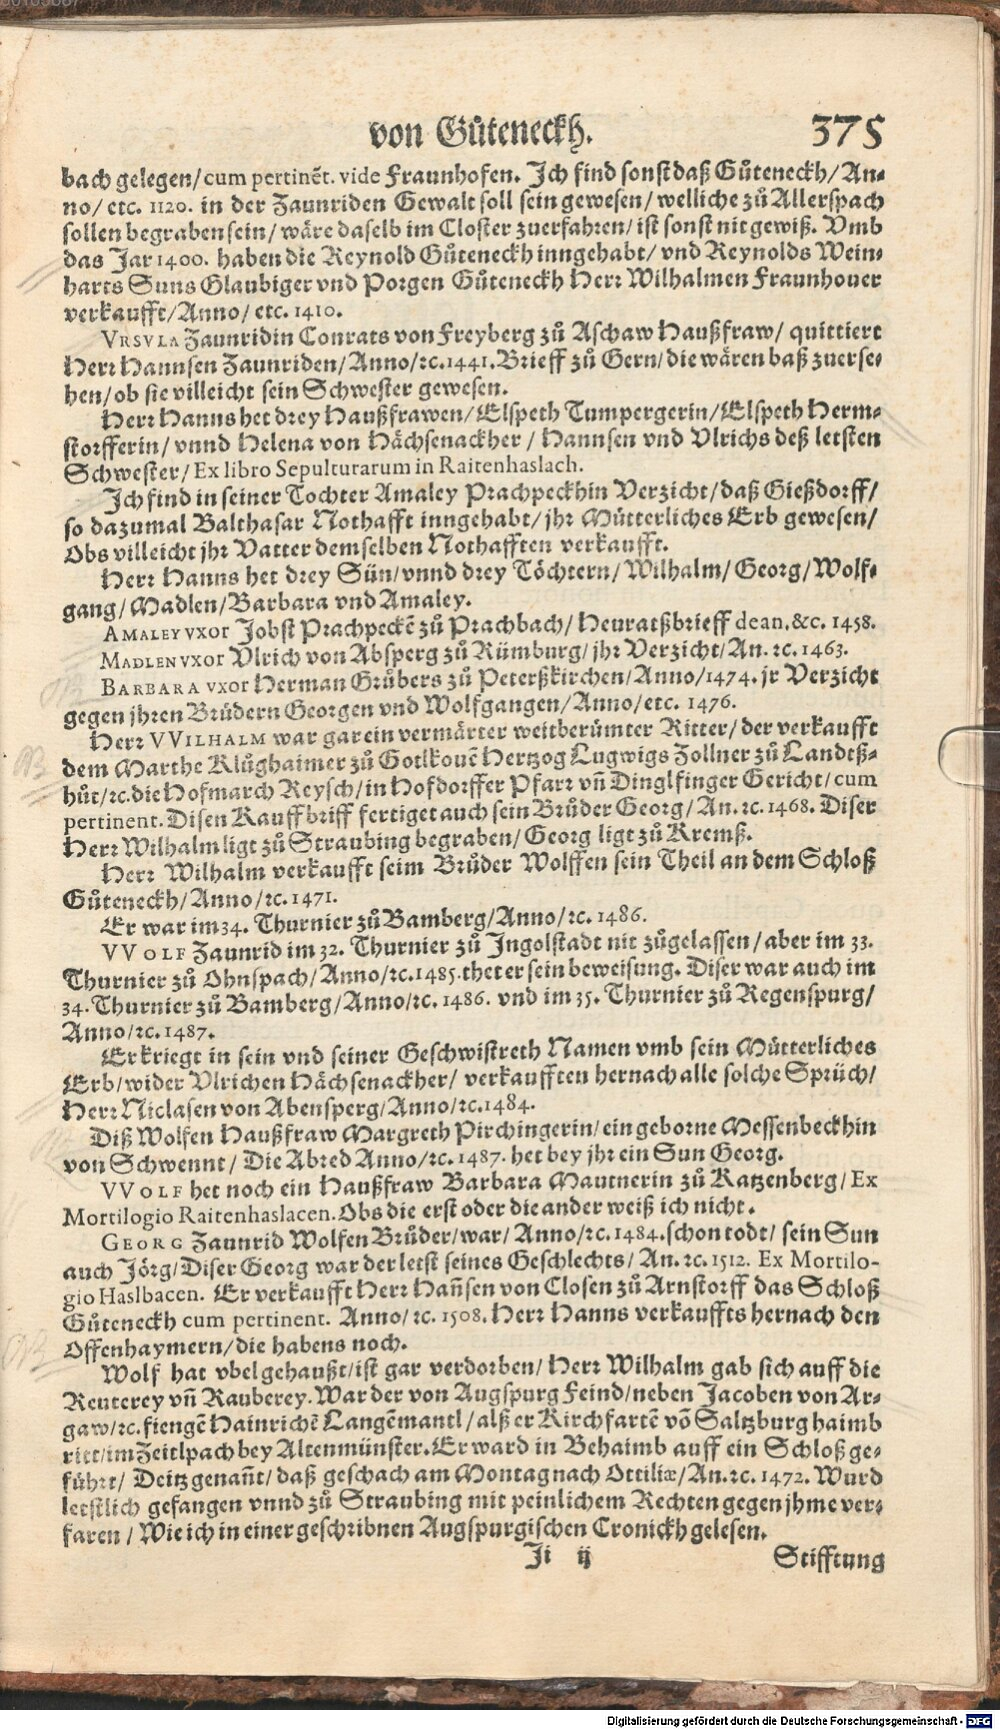 von Gůteneckh. 375
bach gelegen/cum pertinẽt. vide Fraunhofen. Ich find sonst daß Gůteneckh/An-
no/ etc. 1120. in der Zaunriden Gewalt soll sein gewesen/welliche zů Allerspach
sollen begraben sein/wäre daselb im Closter zuerfahren/ist sonst nit gewiß. Vmb
das Jar 1400. haben die Reynold Gůteneckh inngehabt/vnd Reynolds Wein-
harts Suns Glaubiger vnd Porgen Gůteneckh Herr Wilhalmen Fraunhouer
verkaufft/Anno/ etc. 1410.
VRSVLA Zaunridin Conrats von Freyberg zů Aschaw Haußfraw/ quittiert
Herr Hannsen Zaunriden/Anno/ꝛc.1441. Brieff zů Gern/die wären baß zuerse-
hen/ob sie villeicht sein Schwester gewesen.
Herr Hanns het drey Haußfrawen/Elspeth Tumpergerin/Elspeth Herm-
storfferin/vnnd Helena von Hächsenackher/ Hannsen vnd Vlrichs deß letsten
Schwester/Ex libro Sepulturarum in Raitenhaslach.
Ich find in seiner Tochter Amaley Prachpeckhin Verzicht/daß Gießdorff/
so dazumal Balthasar Nothafft inngehabt/jhr Mütterliches Erb gewesen/
Obs villeicht jhr Vatter demselben Nothafften verkaufft.
Herr Hanns het drey Sün/vnnd drey Töchtern/Wilhalm/Georg/Wolf-
gang/Madlen/Barbara vnd Amaley.
AMALEY VXOR Jobst Prachpeckẽ zů Prachbach/Heuratßbrieff dean.&c. 1458.
MADLEN VXOR Vlrich von Absperg zů Rümburg/jhr Verzicht/An.ꝛc.1463.
BARBARA VXOR Herman Grübers zů Peterßkirchen/Anno/1474. jr Verzicht
gegen jhren Brüdern Georgen vnd Wolfgangen/Anno/etc. 1476.
Herr VVILHALM war gar ein vermärter weitberümter Ritter/der verkaufft
dem Marthe Klůghaimer zů Gotlkouẽ Hertzog Lugwigs Zollner zů Landtß-
hůt/ꝛc.die Hofmarch Reysch/in Hofdorffer Pfarr vñ Dinglfinger Gericht/cum
pertinent. Disen Kauffbriff fertiget auch sein Brůder Georg/An.ꝛc.1468. Diser
Herr Wilhalm ligt zů Straubing begraben/Georg ligt zů Kremß.
Herr Wilhalm verkaufft seim Brůder Wolffen sein Theil an dem Schloß
Gůteneckh/Anno/ꝛc.1471.
Er war im 34. Thurnier zů Bamberg/Anno/ꝛc. 1486.
VVOLF Zaunrid im 32. Thurnier zů Ingolstadt nit zůgelassen/aber im 33.
Thurnier zů Ohnspach/Anno/ꝛc.1485.thet er sein beweisung. Diser war auch im
34. Thurnier zů Bamberg/Anno/ꝛc. 1486. vnd im 35. Thurnier zů Regenspurg/
Anno/ꝛc.1487.
Er kriegt in sein vnd seiner Geschwistreth Namen vmb sein Mütterliches
Erb/wider Vlrichen Hächsenackher/ verkaufften hernach alle solche Sprüch/
Herr Niclasen von Abensperg/Anno/ꝛc.1484.
Diß Wolfen Haußfraw Margreth Pirchingerin/ein geborne Messenbeckhin
von Schwennt/ Die Abred Anno/ꝛc.1487. het bey jhr ein Sun Georg.
VVOLF het noch ein Haußfraw Barbara Mautnerin zů Katzenberg/Ex
Mortilogio Raitenhaslacen. Obs die erst oder die ander weiß ich nicht.
GEORG Zaunrid Wolfen Brůder/war/ Anno/ꝛc.1484.schon todt/ sein Sun
auch Jörg/Diser Georg war der letst seines Geschlechts/An.ꝛc.1512. Ex Mortilo-
gio Haslbacen. Er verkaufft Herr Hañsen von Closen zů Arnstorff das Schloß
Gůteneckh cum pertinent. Anno/ꝛc. 1508. Herr Hanns verkauffts hernach den
Offenhaymern/die habens noch.
Wolf hat vbel gehaußt/ist gar verdorben/ Herr Wilhalm gab sich auff die
Reuterey vñ Rauberey. War der von Augspurg Feind/neben Jacoben von Ar-
gaw/ꝛc. fiengẽ Hainrichẽ Langẽmantl/alß er Kirchfartẽ võ Saltzburg haimb
ritt/im Zeitlpach bey Altenmünster. Er ward in Behaimb auff ein Schloß ge-
führt/ Deitz genañt/daß geschach am Montag nach Ottiliæ/An.ꝛc. 1472. Wurd
letstlich gefangen vnnd zů Straubing mit peinlichem Rechten gegen jhme ver-
faren/Wie ich in einer geschribnen Augspurgischen Cronickh gelesen.
Ii ij Stifftung
Digitalisierung gefördert durch die Deutsche Forschungsgemeinschaft - DFG